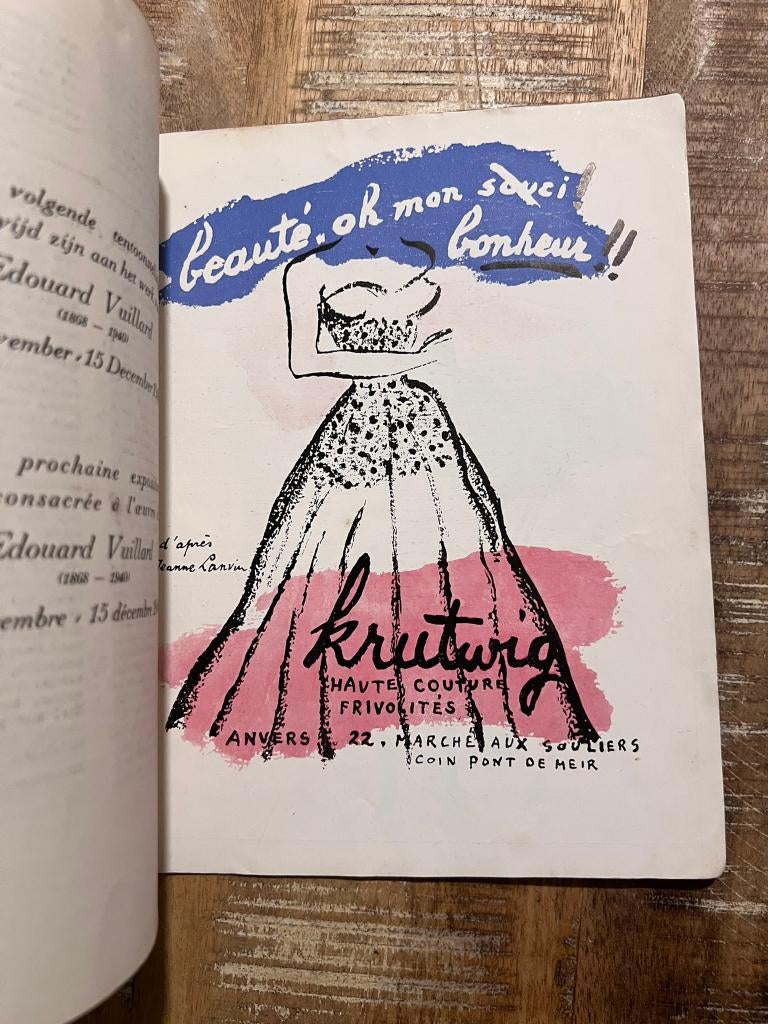 volgende tentoonst
wijd zijn aan het werk
Edouard Vuillard
(1868 - 1940)
vember, 15 December
prochaine expos
consacrée à l'œuvre
Edouard Vuillard
(1868 - 1940)
embre, 15 décembre
beauté, oh mon souci!
bonheur!!
d'après
Jeanne Lanvin
krutwig
HAUTE COUTURE
FRIVOLITÉS
ANVERS 22, MARCHÉ AUX SOULIERS
COIN PONT DE MEIR